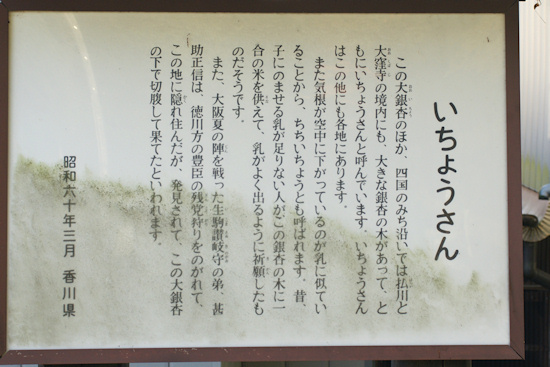 いちょうさん
この大銀杏のほか、四国のみち沿いでは払川と
大窪寺の境内にも、大きな銀杏の木があって、と
もにいちょうさんと呼んでいます。いちょうさん
はこの他にも各地にあります。
また気根が空中に下がっているのが乳に似てい
ることから、ちちいちょうとも呼ばれます。昔、
子にのませる乳が足りない人がこの銀杏の木に一
合の米を供えて、乳がよく出るように祈願したも
のだそうです。
また、大阪夏の陣を戦った生駒讃岐守の弟、甚
助正信は、徳川方の豊臣の残党狩りをのがれて、
この地に隠れ住んだが、発見されて、この大銀杏
の下で切腹して果てたといわれます。
昭和六十年三月 香川県